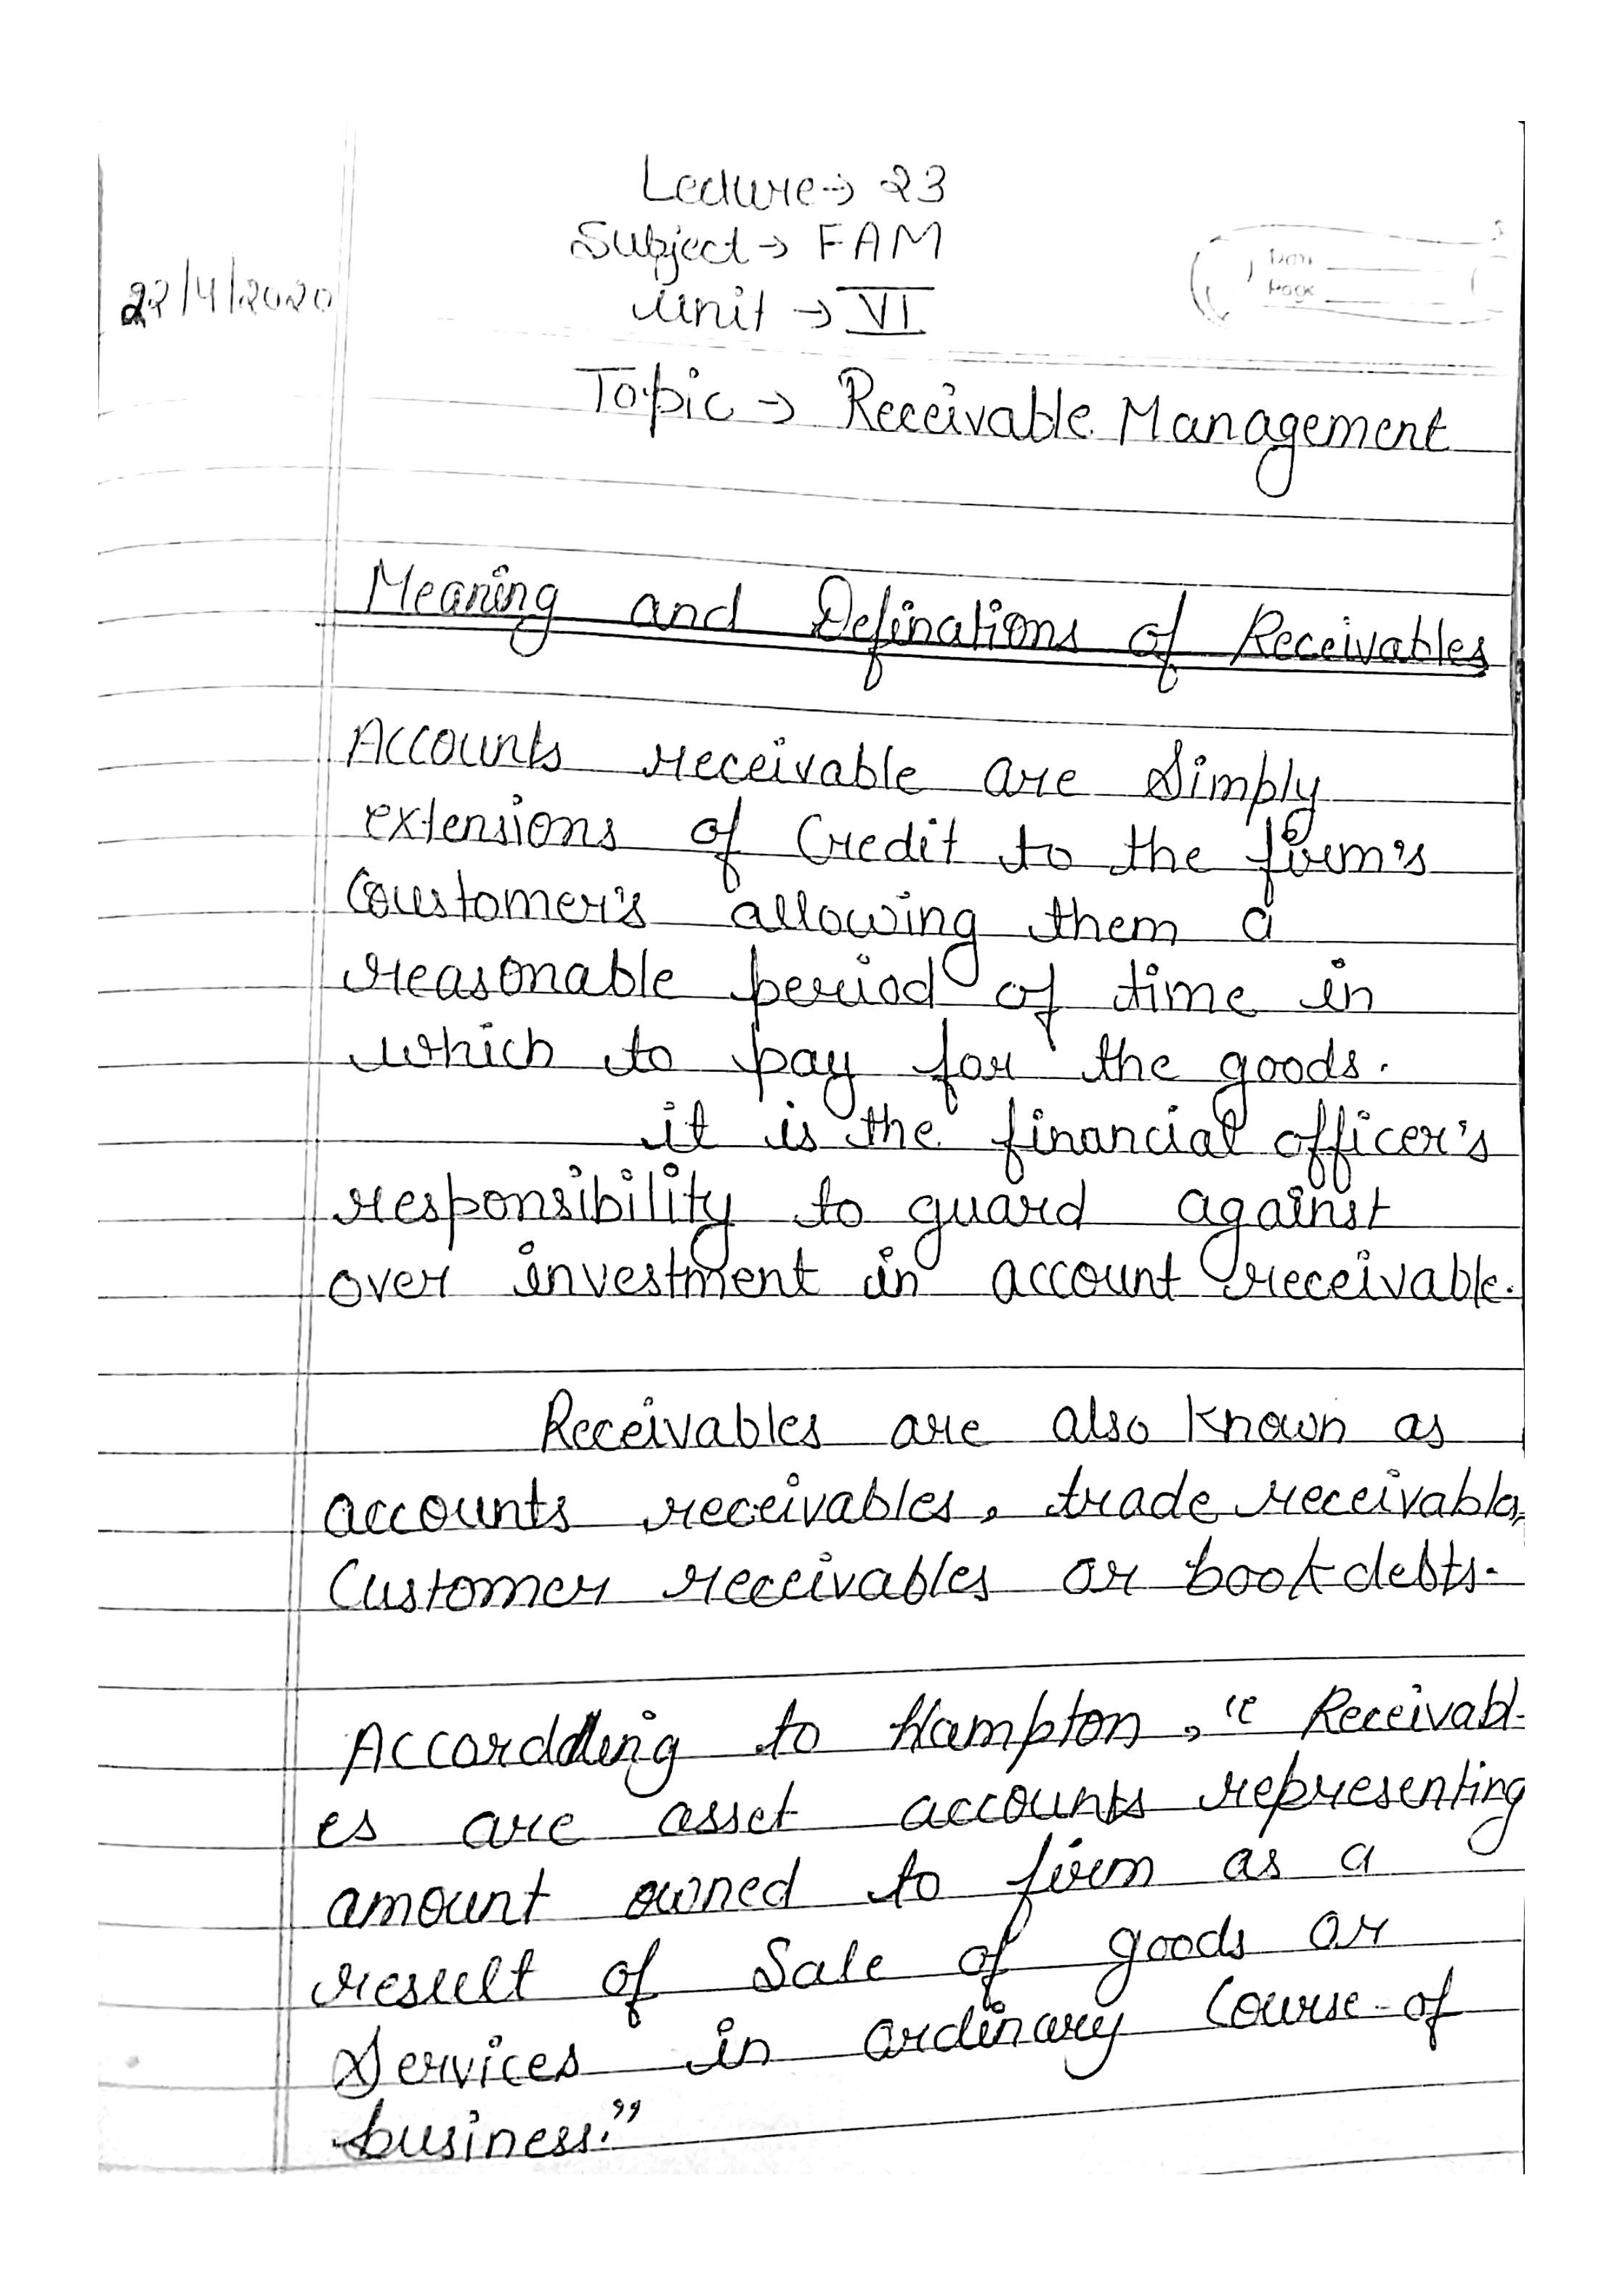 Lecture → 23
Subject → FAM
Date
Page
22/4/2020
Unit → VI
Topic → Receivable Management
Meaning and Definations of Receivables
Accounts receivable are Simply
extensions of Credit to the firm's
Coustomer's allowing them a
reasonable period of time in
which to pay for the goods.
it is the financial officer's
responsibility to guard against
over investment in account receivable.
Receivables are also known as
accounts receivables, trade receivables,
Customer receivables or book debts.
Accordding to Hampton, "Receivabl-
es are asset accounts representing
amount owned to firm as a
result of Sale of goods or
Services in ordinary Course of
business."